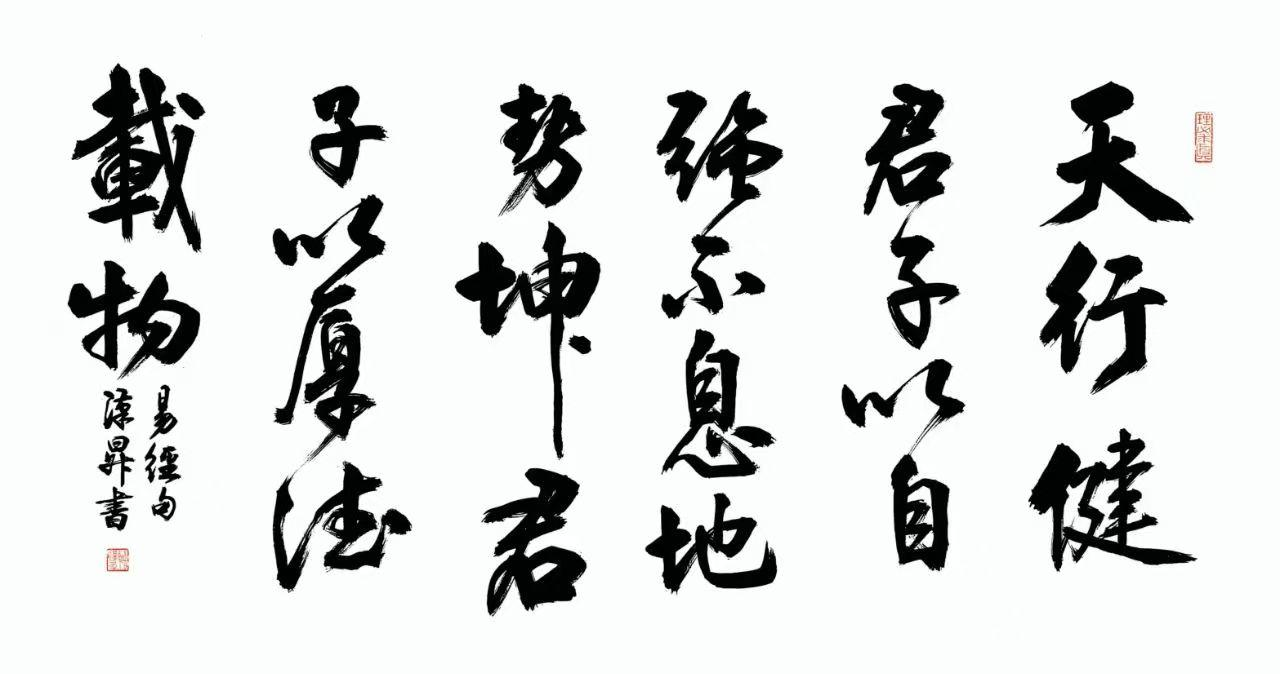 天行健
君子以自
強不息地
勢坤君
子以厚德
載物
易經句
漢昇書